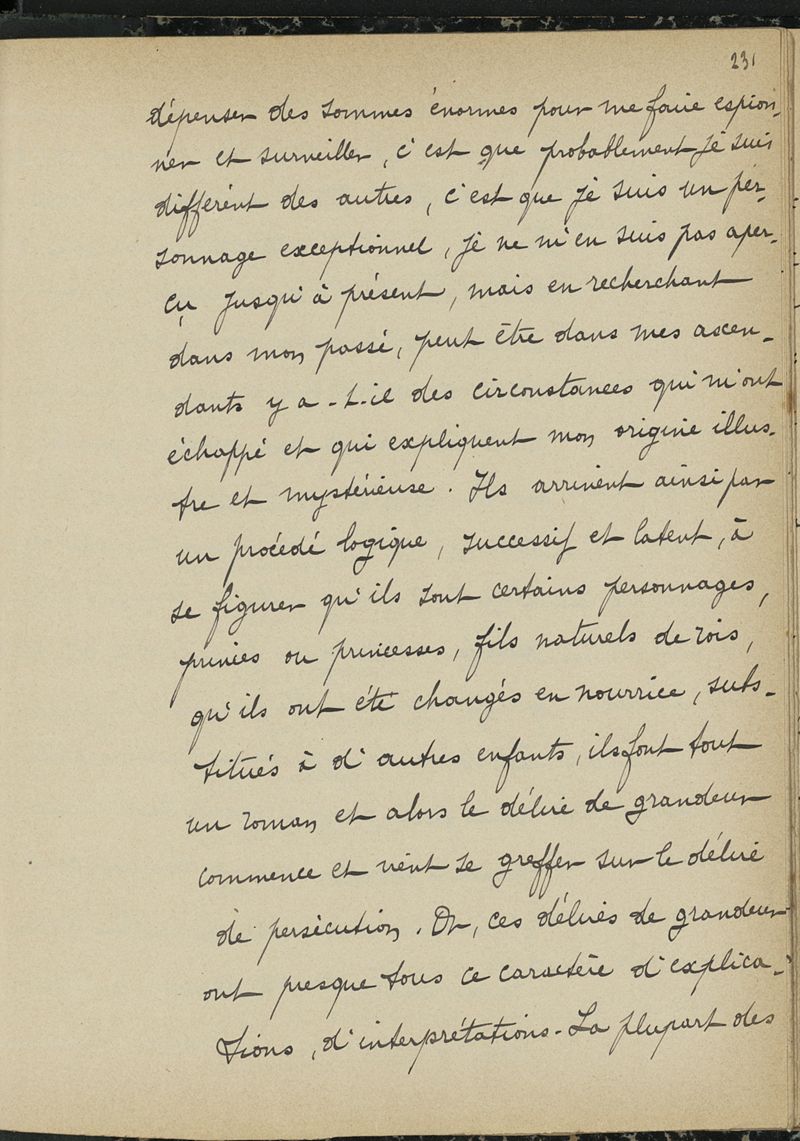 231
dépenser des sommes énormes pour me faire espion-
ner et surveiller, c'est que probablement je suis
différent des autres, c'est que je suis un per-
sonnage exceptionnel, je ne m'en suis pas aper-
çu jusqu'à présent, mais en recherchant
dans mon passé, peut être dans mes ascen-
dants y a-t-il des circonstances qui m'ont
échappé et qui expliquent mon origine illus-
tre et mystérieuse. Ils arrivent ainsi par
un procédé logique, successif et latent, à
se figurer qu'ils sont certains personnages,
princes ou princesses, fils naturels de rois,
qu'ils ont été changés en nourrice, subs-
titués à d'autres enfants, ils font tout
un roman et alors le délire de grandeur
commence et vient se greffer sur le délire
de persécution. Or, ces délires de grandeur
ont presque tous ce caractère d'explica-
tions, d'interprétations. La plupart des